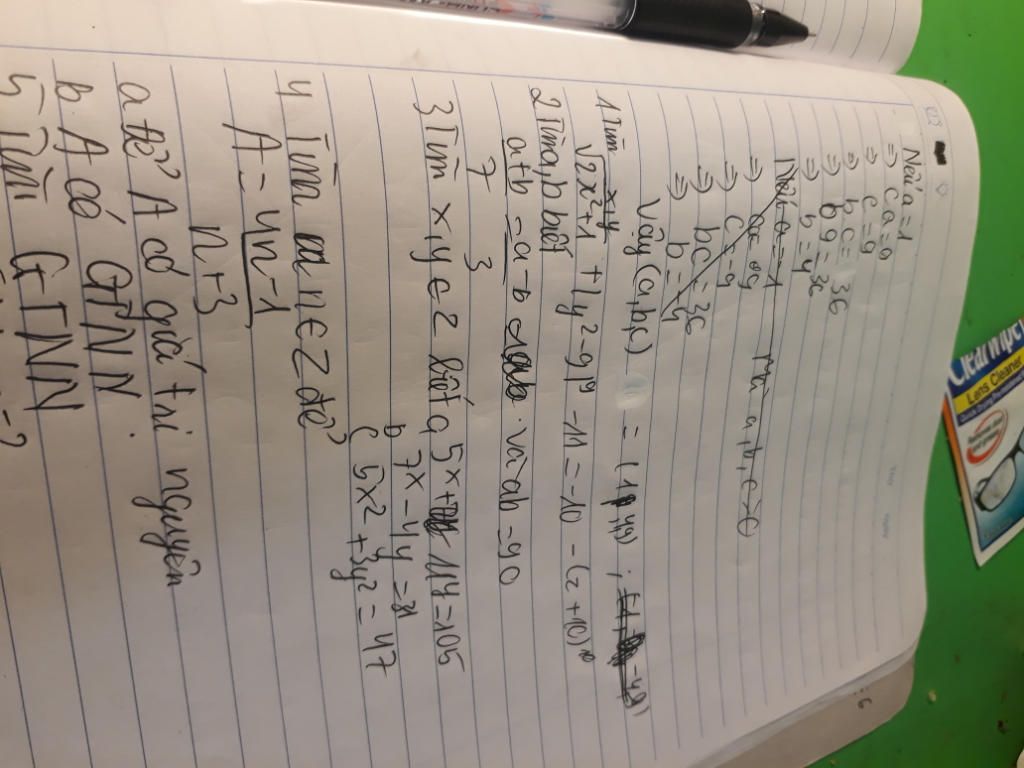 Nếu a = 1
=> ca = 9
=> c = 9
=> bc = 36
=> b9 = 36
=> b = 4
Nếu a = -1 mà a, b, c > 0
=> ac = 9
=> c = -9
=> bc = 36
=> b = -4
Vậy (a,b,c) = (1,4,9);
1 Tìm x, y
√2x²+1 + |y²-9|⁹ - 11 = -10 - (z+10)¹⁰
2 Tìm a, b biết
a+b/7 = a-b/3 và ab = 90
3 Tìm x, y ∈ Z biết a, 5x + 11y = 105
b 7x - 4y = 81
c 5x2 + 3y2 = 47
4. Tìm n ∈ Z để
A = 4n-1/n+3
a để A có giá trị nguyên
b. A có GTNN.
5 Tìm GTNN
Clearwipe
Lens Cleaner